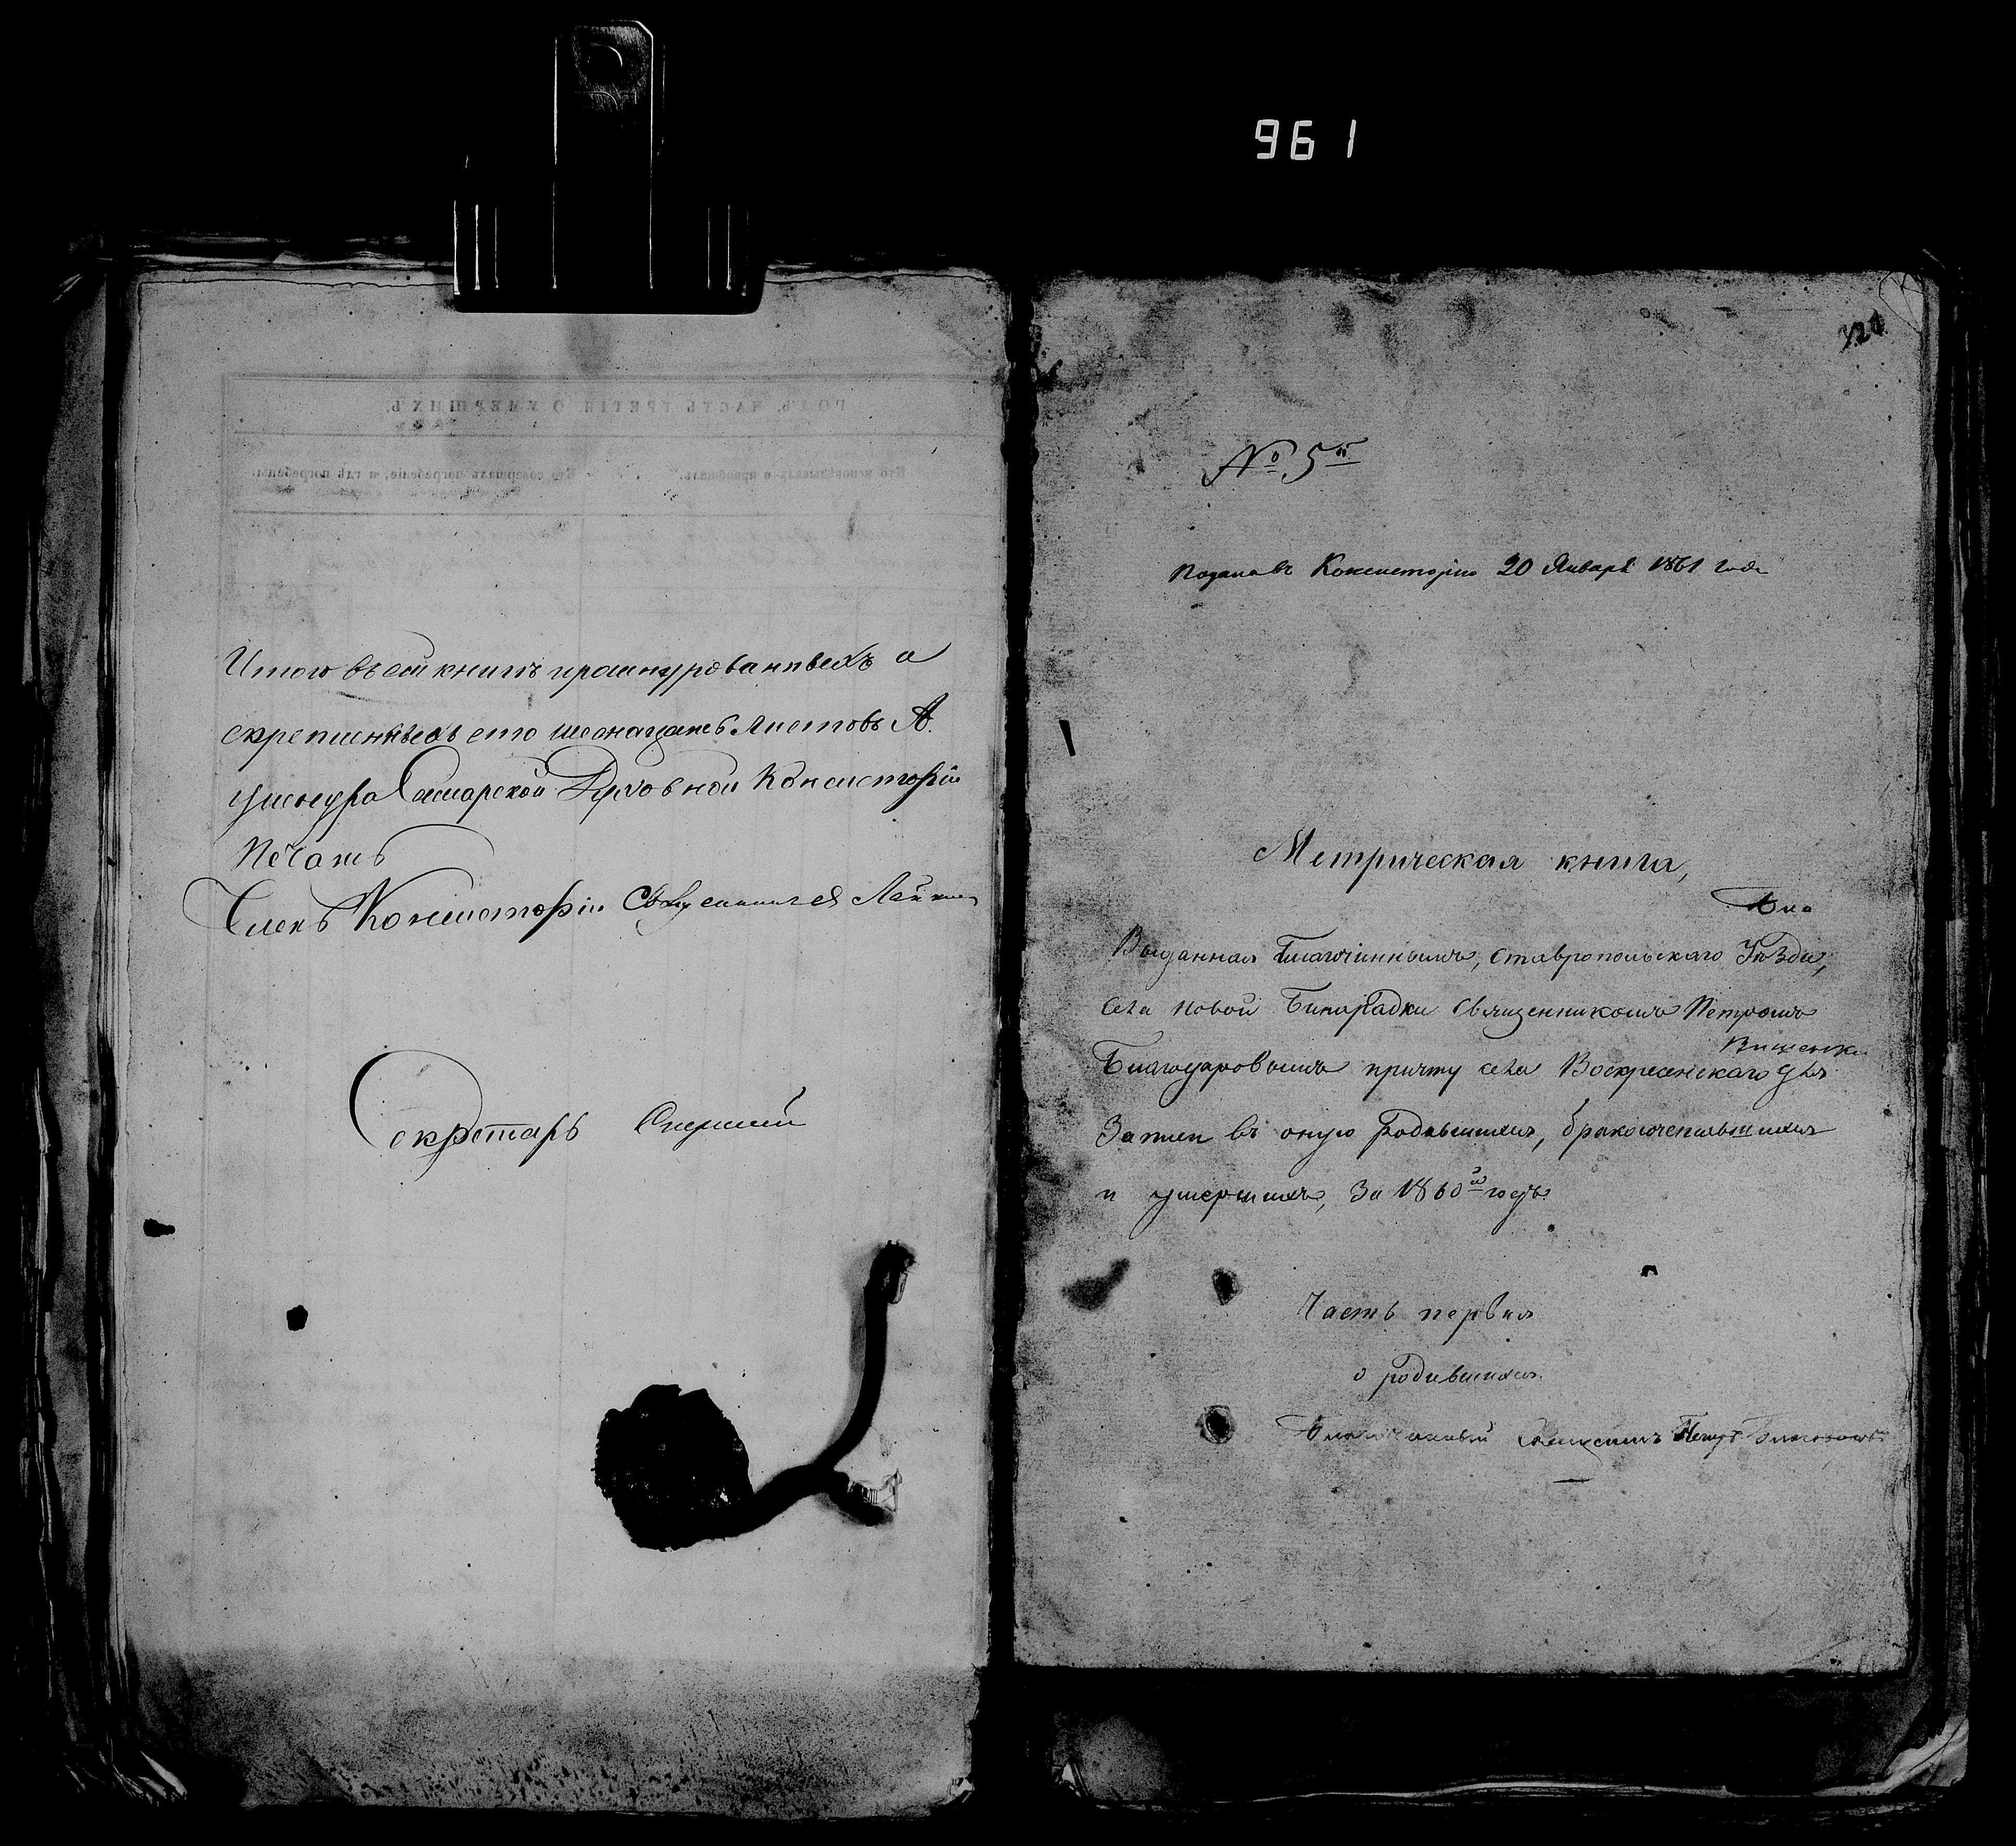 961
Итого въ сей книгѣ прошнурованныхъ и
скрепленныхъ сто шеснацать листовъ А.
у шнура Самарской Духовной Консисторіи
Печать
Членъ Консисторіи Священникъ
Секретарь
РОДЪ, ЧАСТЬ ТРЕТІЯ О УМЕРШИХЪ.
Кто исповѣдывалъ и пріобщалъ. Кто совершалъ погребеніе, и гдѣ погребены.
№ 5й
Подана въ Консисторію 20 Января 1861 года
Метрическая книга,
Выданная Благочиннымъ, Ставропольскаго Уѣзда,
села Новой Бинарадки Священникомъ Петромъ
Вищенки
Благодаровымъ причту села Воскресенскаго для
Записи въ оную родившихся, бракосочетавшихся
и умершихъ, За 1860й годъ.
Часть первая
о родившихся.
Благочинный Священникъ Петръ